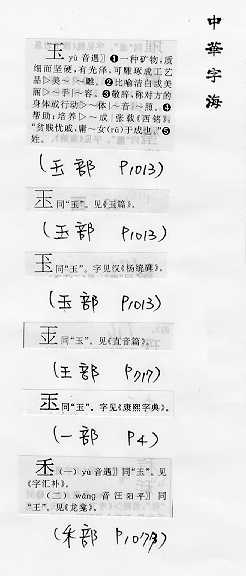 中華字海
玉 yù 音遇〗❶一种矿物,质
细而坚硬,有光泽,可雕琢成工艺
品▷美~|~雕。❷比喻洁白或美
丽▷~手|~容。❸敬辞,称对方的
身体或行动▷~体|~音|~照。❹
帮助;培养▷~成|张载《西铭》:
“贫贱忧戚,庸~女(rǔ)于成也。”❺
姓。
(玉部 P1013)
同“玉”。见《玉篇》。
(玉部 P1013)
同“玉”。字见汉《杨统碑》。
(玉部 P1013)
同“玉”。见《直音篇》。
(王部 P717)
同“玉”。字见《康熙字典》。
(一部 P4)
(一)yù 音遇〗同“玉”。见
《字汇补》。
(二)wāng 音汪阳平〗同
“王”。见《龙龛》。